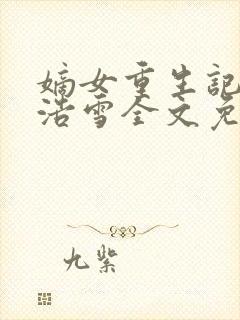 嫡女重生記
浩雪全文免
九紫